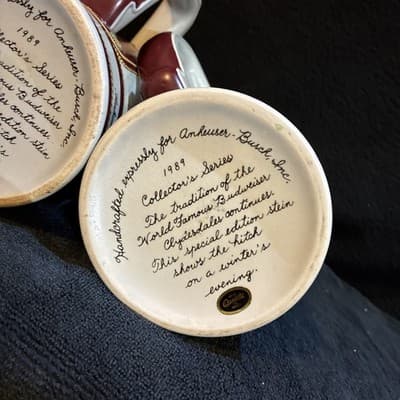 expressly for Anheuser-Busch, Inc.
1989
Collector's Series
tradition of the
Famous Budweiser
continues.
edition stein
hitch
Handcrafted expressly for Anheuser-Busch, Inc.
1989
Collector's Series
The tradition of the
World Famous Budweiser
Clydesdales continues.
This special edition stein
shows the hitch
on a winter's
evening.